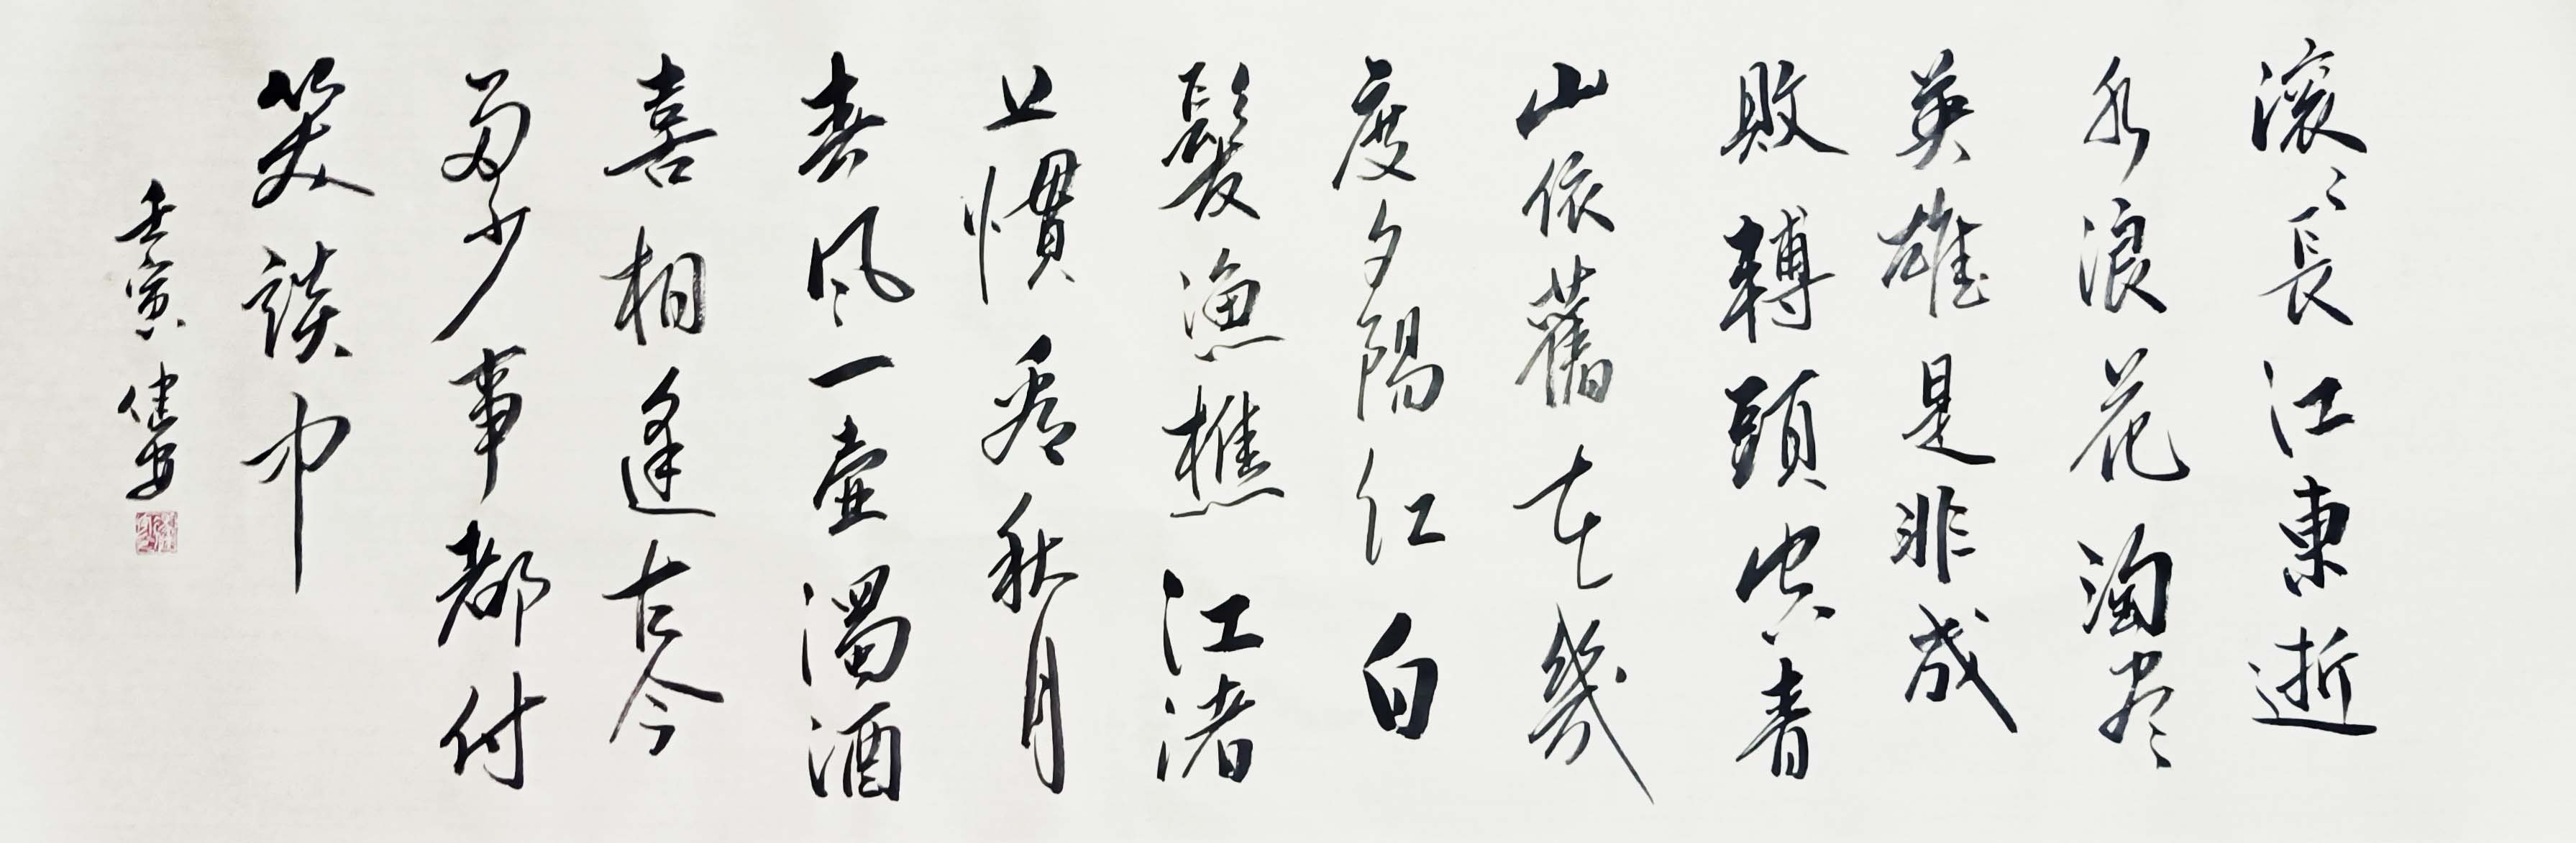 滚々長江東逝
水浪花淘尽
英雄是非成
敗轉頭空青
山依舊在幾
度夕陽红白
髮漁樵江渚
上慣看秋月
春风一壶濁酒
喜相逢古今
多少事都付
笑談中
壬寅健安